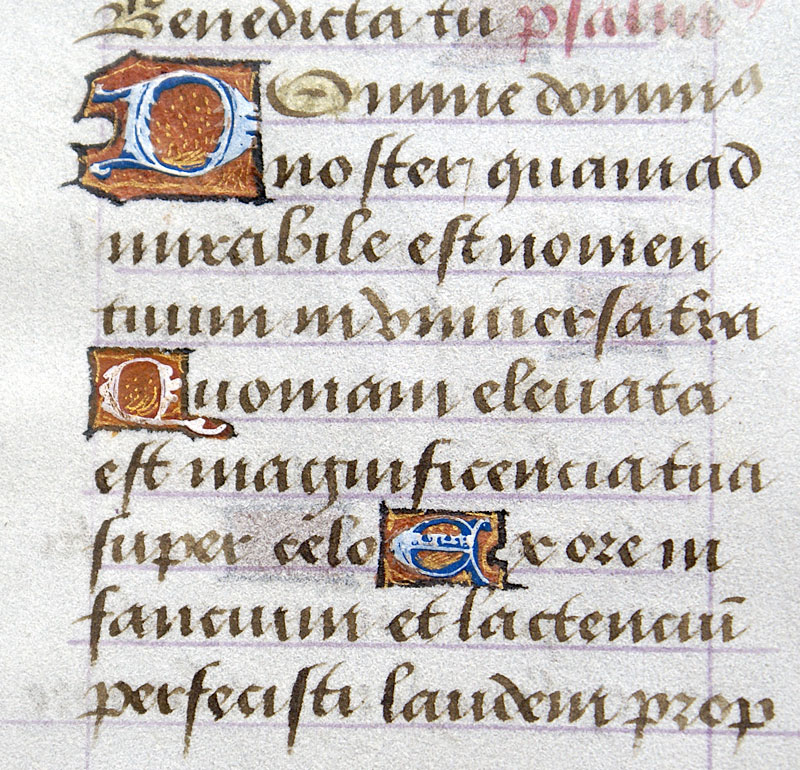 Benedicta tu psalmꝰ
Domine dominꝰ
noster quam ad
mirabile est nomen
tuum in vniuersa t̄ra
Quoniam eleuata
est magnificencia tua
super celo Ex ore in
fancium et lactenciū
perfecisti laudem prop